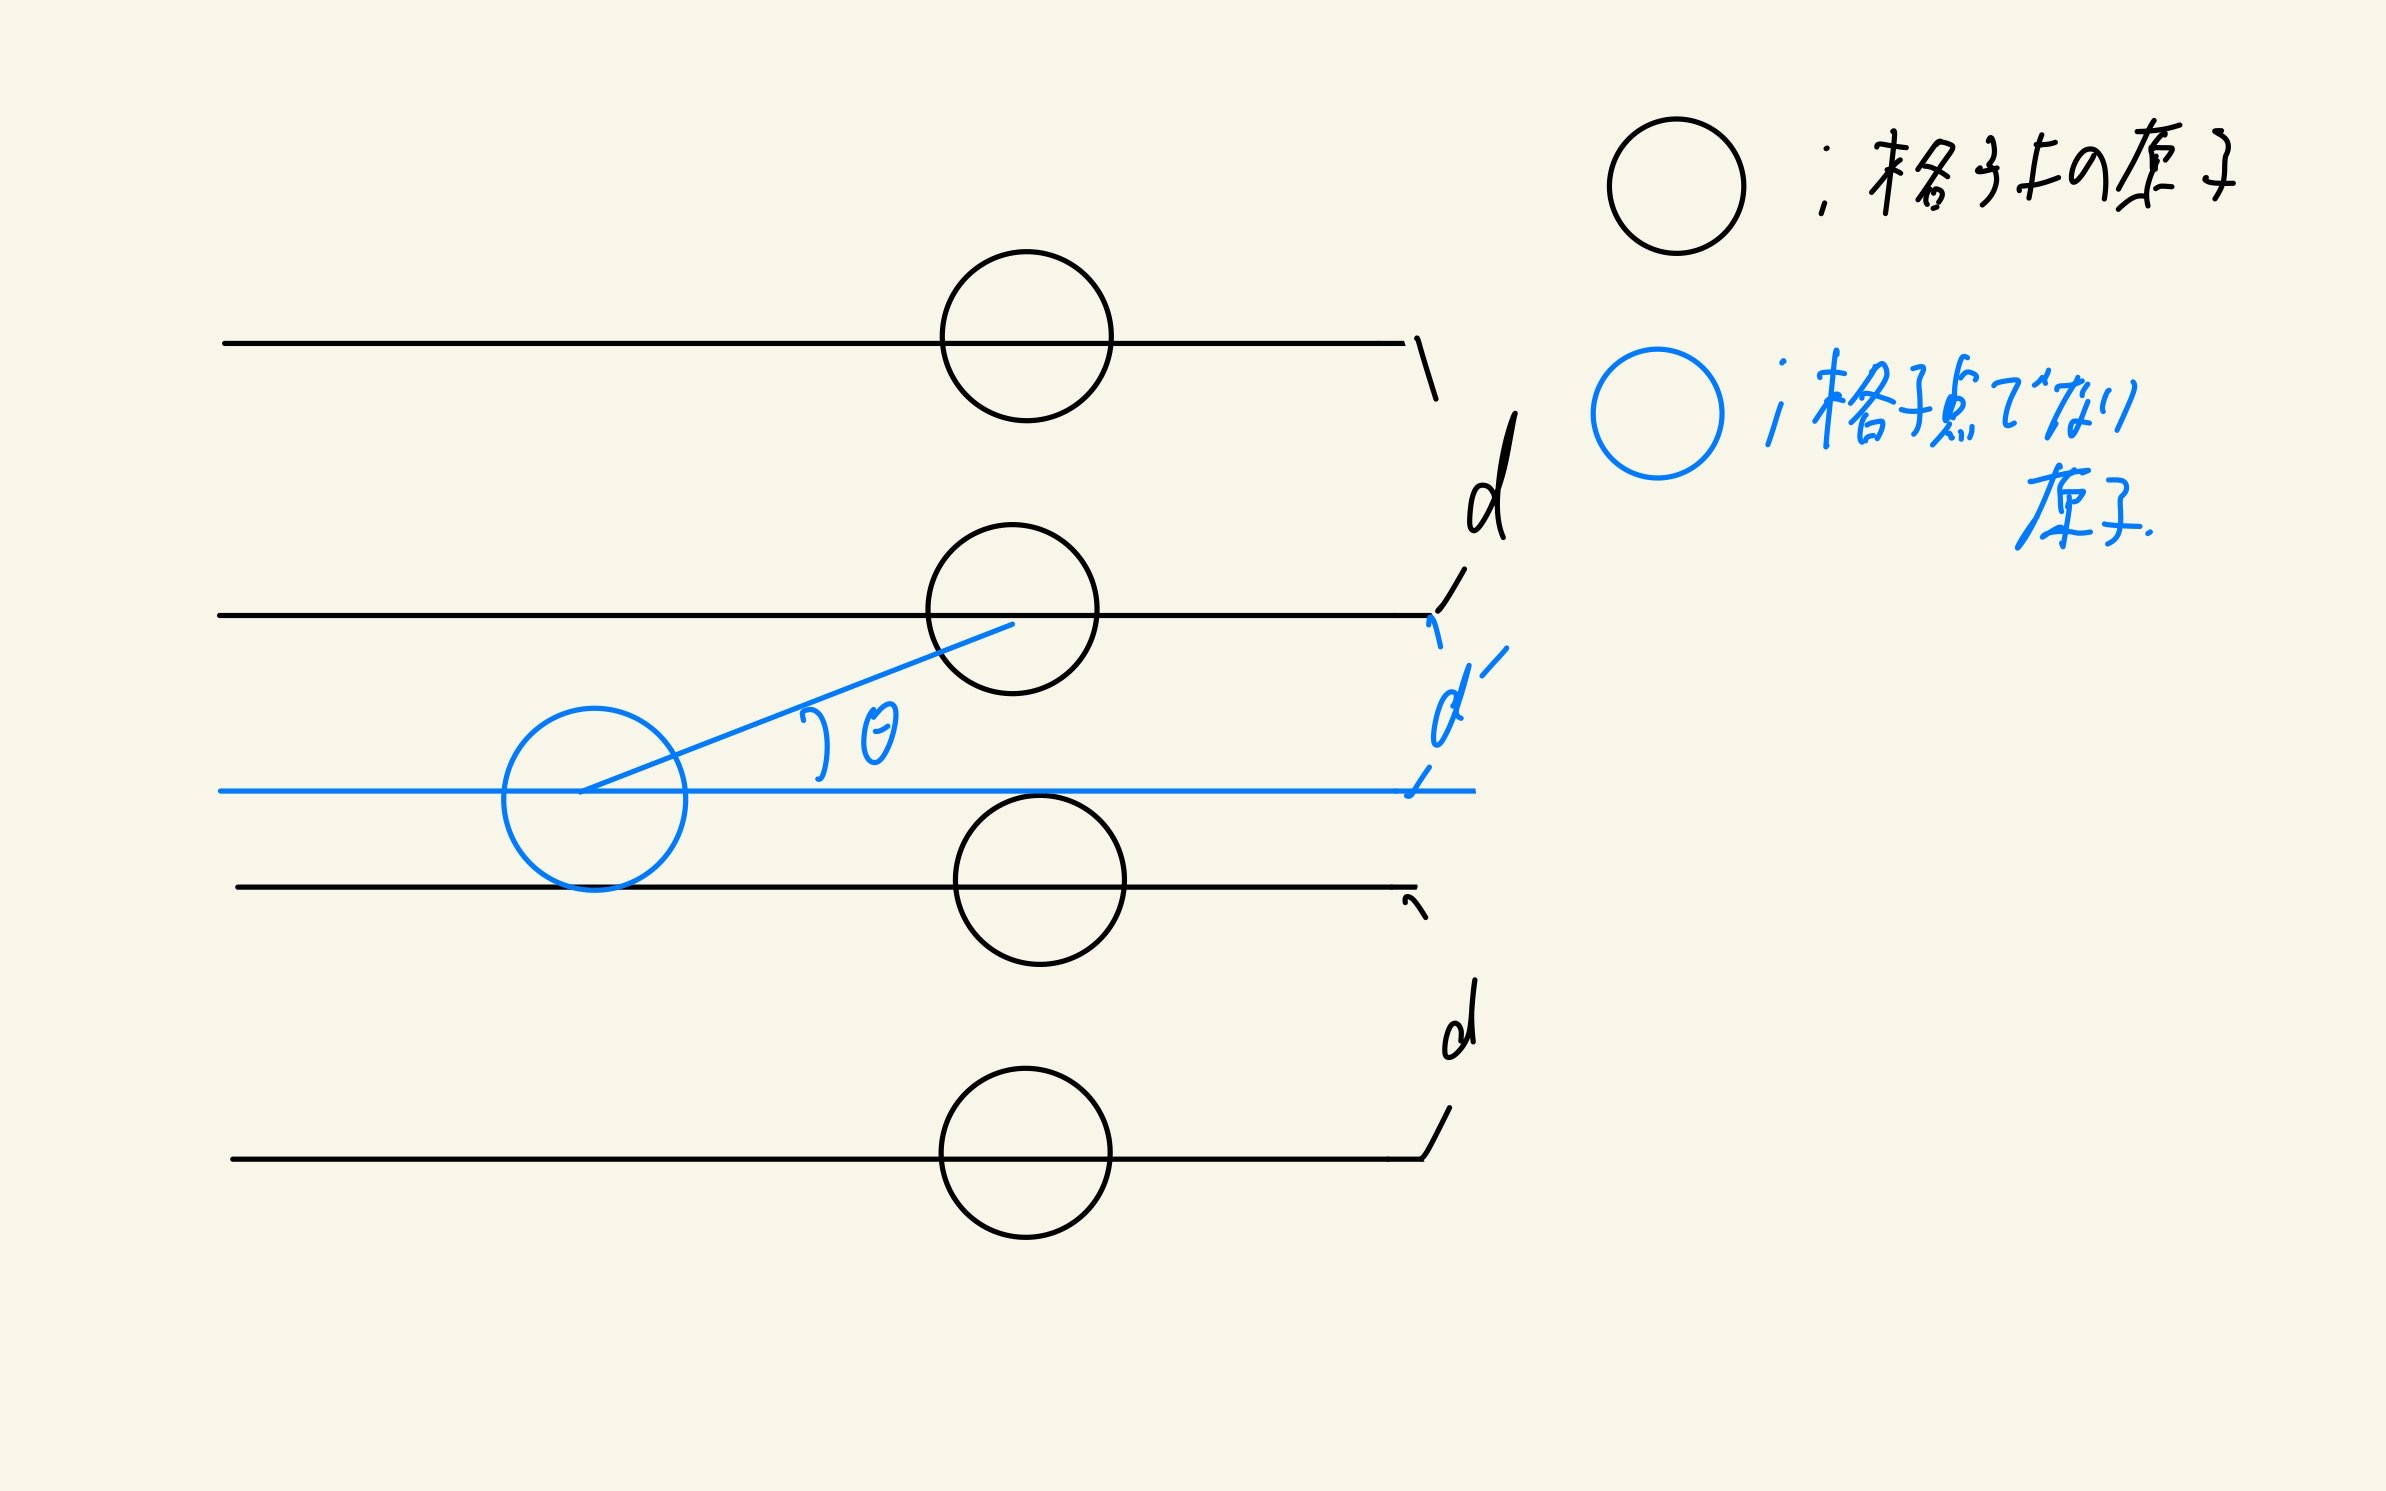 : 格子上の原子
: 格子点でない
原子.
d
d′
θ
d